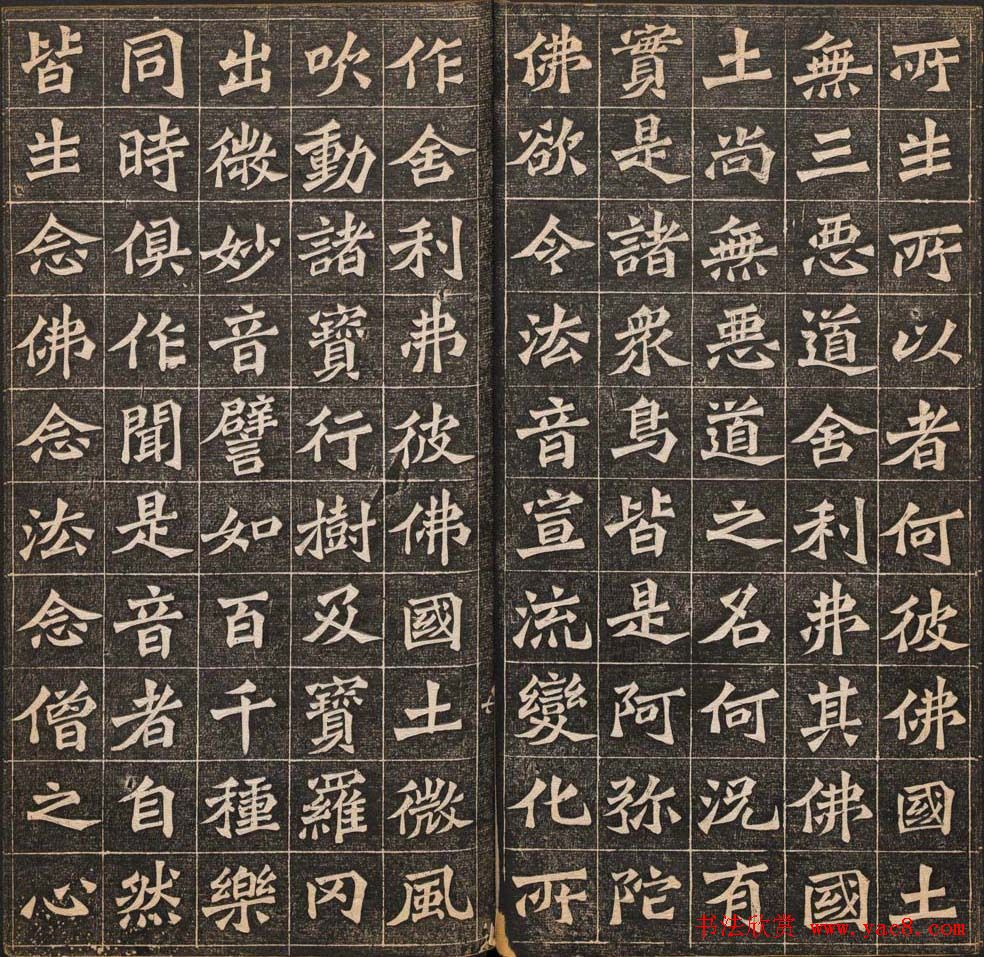 所生所以者何彼佛國土
無三悪道舍利弗其佛國
土尚無悪道之名何况有
實是諸衆鳥皆是阿弥陀
佛欲令法音宣流變化所
作舍利弗彼佛國土微風
吹動諸寶行樹及寶羅网
出微妙音譬如百千種樂
同時俱作聞是音者自然
皆生念佛念法念僧之心
书法欣赏
www.yac8.com